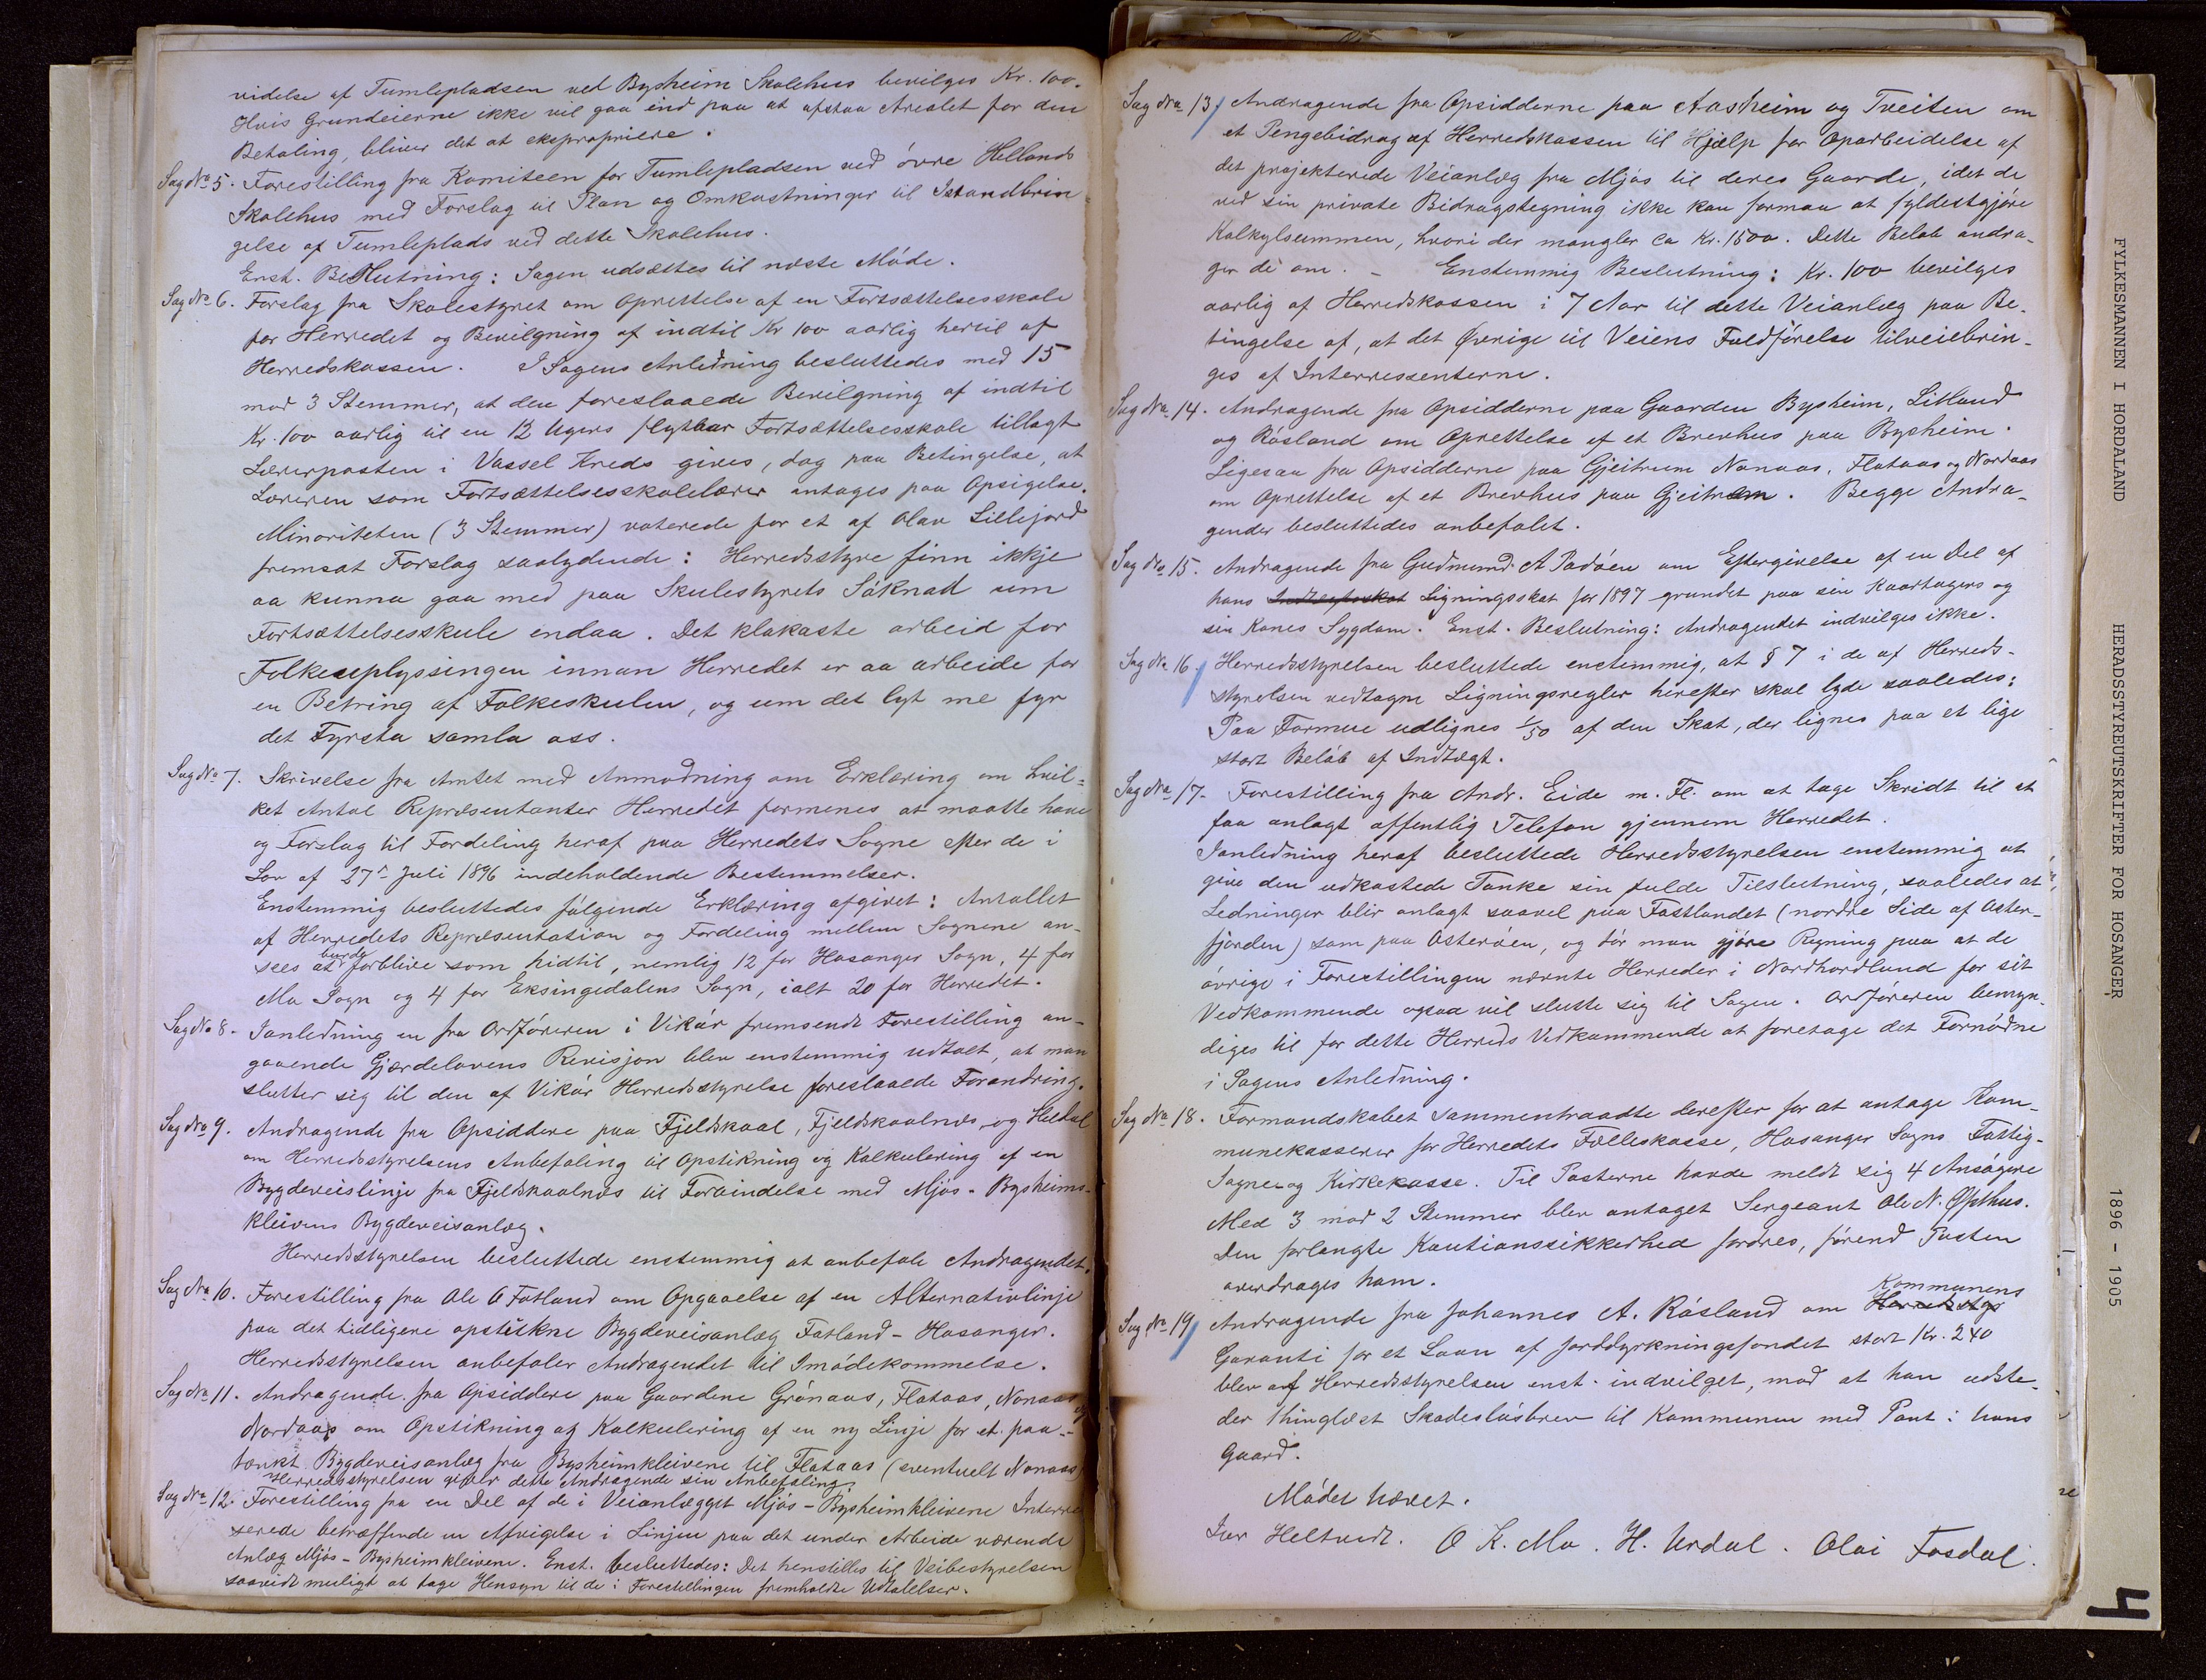 videlse af Tumlepladsen ved Bysheim Skolehus bevilges Kr. 100.
Hvis Grundeierne ikke vil gaa ind paa at afstaa Arealet for den
Betaling, bliver det at ekspropriere.
Sag No 5. Forestilling fra Komiteen for Tumlepladsen ved övre Hellands
Skolehus med Forslag til Plan og Omkostninger til Istandbrin-
gelse af Tumleplads ved dette Skolehus.
Enst. Beslutning: Sagen udsættes til næste Möde.
Sag No 6. Forslag fra Skolestyret om Oprettelse af en Fortsættelsesskole
for Herredet og Bevilgning af indtil Kr 100 aarlig hertil af
Herredskassen. I Sagens Anledning besluttedes med 15
mod 3 Stemmer, at den foreslaaede Bevilgning af indtil
Kr. 100 aarlig til en 12 Ugers flytbar Fortsættelsesskole tillagt
Lærerposten i Vassel Kreds gives, dog paa Betingelse, at
Læreren som Fortsættelsesskolelærer antages paa Opsigelse.
Minoriteten (3 Stemmer) voterede for et af Olav Lillejord
fremsat Forslag saalydende: Herredsstyre finn ikkje
aa kunna gaa med paa Skulestyrets Söknad um
Fortsættelsesskule endaa. Det klokaste arbeid for
Folkeuplyssingen innan Herredet er aa arbeide for
en Betring af Folkeskulen, og um det lyt me fyr
det Fyrsta samla oss.
Sag No 7. Skrivelse fra Amtet med Anmodning om Erklæring om hvil-
ket Antal Repræsentanter Herredet formenes at maatte have
og Forslag til Fordeling heraf paa Herredets Sogne efter de i
Lov af 27de Juli 1896 indeholdende Bestemmelser.
Enstemmig besluttedes fölgende Erklæring afgivet: Antallet
af Herredets Repræsentation og Fordeling mellem Sognene an-
sees at burde forblive som hidtil, nemlig 12 for Hosanger Sogn, 4 for
Mo Sogn og 4 for Eksingedalens Sogn, ialt 20 for Herredet.
Sag No 8. Ianledning en fra Ordföreren i Vikör fremsendt Forestilling an-
gaaende Gjærdelovens Revisjon blev enstemmig udtalt, at man
slutter sig til den af Vikör Herredsstyrelse foreslaaede Forandring.
Sag No 9. Andragende fra Opsiddere paa Fjeldskaal, Fjeldskaalnes og Heldal
om Herredsstyrelsens Anbefaling til Opstikning og Kalkulering af en
Bygdeveislinje fra Fjeldskaalnes til Forbindelse med Mjös-Bysheims-
kleivens Bygdeveisanlæg.
Herredsstyrelsen besluttede enstemmig at anbefale Andragendet.
Sag No 10. Forestilling fra Ole O Fotland om Opgaaelse af en Alternativlinje
paa det tidligere opstikne Bygdeveisanlæg Fotland-Hosanger.
Herredsstyrelsen anbefaler Andragendet til Imödekommelse.
Sag No 11. Andragende fra Opsiddere paa Gaardene Grönaas, Flataas, Nonaas og
Nordaas om Opstikning og Kalkulering af en ny Linje for et paa-
tænkt Bygdeveisanlæg fra Bysheimkleivene til Flataas (eventuelt Nonaas)
Herredsstyrelsen giver dette Andragende sin Anbefaling.
Sag No 12. Forestilling fra en Del af de i Veianlægget Mjös-Bysheimkleivene Interres-
serede betræffende en Afvigelse i Linjen paa det under Arbeide værende
Anlæg Mjös-Bysheimkleivene. Enst. besluttedes: Det henstilles til Veibestyrelsen
saavidt muligt at tage Hensyn til de i Forestillingen fremholdte Udtalelser.
Sag No 13. Andragende fra Opsidderne paa Aasheim og Tveiten om
et Pengebidrag af Herredskassen til Hjælp for Oparbeidelse af
det projekterede Veianlæg fra Mjös til deres Gaarde, idet de
ved sin private Bidragstegning ikke kan formaa at fyldestgjöre
Kalkylsummen, hvori der mangler ca Kr. 1500. Dette Belöb andra-
ger de om. - Enstemmig Beslutning: Kr. 100 bevilges
aarlig af Herredskassen i 7 Aar til dette Veianlæg paa Be-
tingelse af, at det Øvrige til Veiens Fuldförelse tilveiebrin-
ges af Interressenterne.
Sag No 14. Andragende fra Opsidderne paa Gaarden Bysheim, Litland
og Rösland om Oprettelse af et Brevhus paa Bysheim.
Ligesaa fra Opsidderne paa Gjeitrum Nonaas, Flataas og Nordaas
om Oprettelse af et Brevhus paa Gjeitrem. Begge Andra-
gender besluttedes anbefalet.
Sag No 15. Andragende fra Gudmund A Padöen om Eftergivelse af en Del af
hans Indtægtsskat Ligningsskat for 1897 grundet paa sin Kaartagers og
sin Kones Sygdom. Enst. Beslutning: Andragendet indvilges ikke.
Sag No 16. Herredsstyrelsen besluttede enstemmig, at § 7 i de af Herreds-
styrelsen vedtagne Ligningsregler herefter skal lyde saaledes:
Paa Formue udlignes 1/50 af den Skat, der lignes paa et lige
stort Belöb af Indtægt.
Sag No 17. Forestilling fra Andr. Eide m. Fl. om at tage Skridt til at
faa anlagt offentlig Telefon gjennem Herredet.
Ianledning heraf besluttede Herredsstyrelsen enstemmig at
give den udkastede Tanke sin fulde Tilslutning, saaledes at
Ledninger blir anlagt saavel paa Fastlandet (nordre Side af Oster-
fjorden) som paa Osteröen, og tör man gjöre Regning paa at de
övrige i Forestillingen nævnte Herreder i Nordhordland for sit
Vedkommende ogsaa vil slutte sig til Sagen. Ordföreren bemyn-
diges til for dette Herreds Vedkommende at foretage det Fornödne
i Sagens Anledning.
Sag No 18. Formandskabet sammentraadte derefter for at antage Kom-
munekasserer for Herredets Fælleskasse, Hosanger Sogns Fattig-
Sogne- og Kirkekasse. Til Posterne havde meldt sig 4 Ansögere
Med 3 mod 2 Stemmer blev antaget Sergeant Ole N. Øpthus.
Den forlangte Kautionssikkerhed fordres, förend Posten
overdrages ham.
Sag No 19. Andragende fra Johannes A. Rösland om Kommunens
Garanti for et Laan af Jorddyrkningsfondet stort Kr. 240
blev af Herredsstyrelsen enst. indvilget, mod at han udste-
der thinglæst Skadeslösbrev til Kommunen med Pant i hans
Gaard.
Mödet hævet.
Iver Heltvedt. O K. Mo. H. Urdal. Olai Fosdal.
FYLKESMANNEN I HORDALAND HERADSSTYREUTSKRIFTER FOR HOSANGER, 1896 - 1905
4